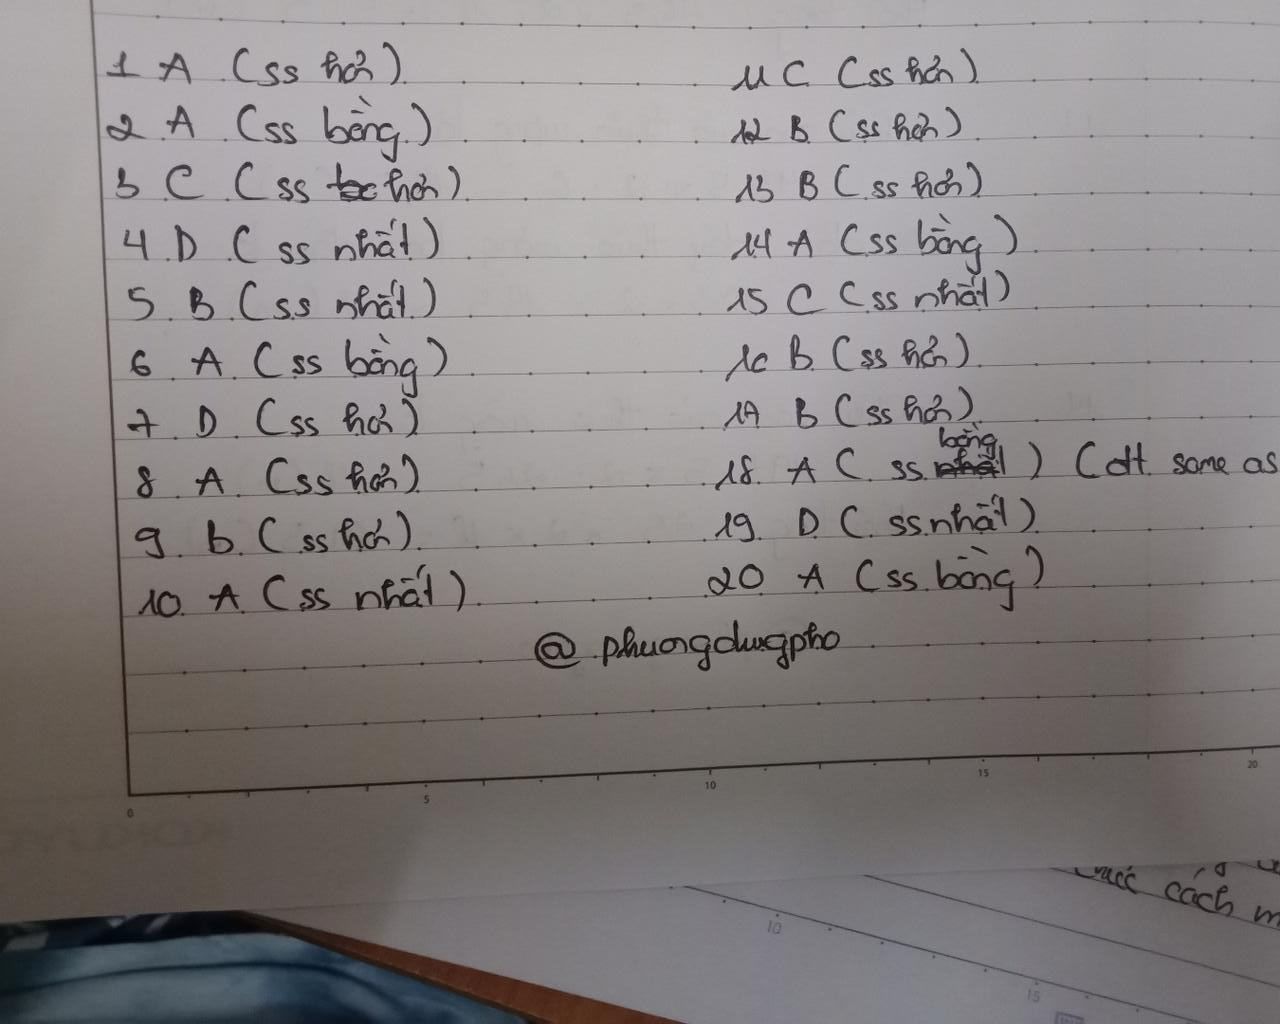 1 A (ss hơn)
2 A (ss bằng)
3 C (ss hơn)
4 D (ss nhất)
5 B (ss nhất)
6 A (ss bằng)
7 D (ss hơn)
8 A (ss hơn)
9 b (ss hơn)
10 A (ss nhất)
11 C (ss hơn)
12 B (ss hơn)
13 B (ss hơn)
14 A (ss bằng)
15 C (ss nhất)
16 B (ss hơn)
17 B (ss hơn)
18 A (ss bằng) (đt same as
19 D (ss nhất)
20 A (ss bằng)
@ phuongdugpho
0 5 10 15 20
cách
10
15